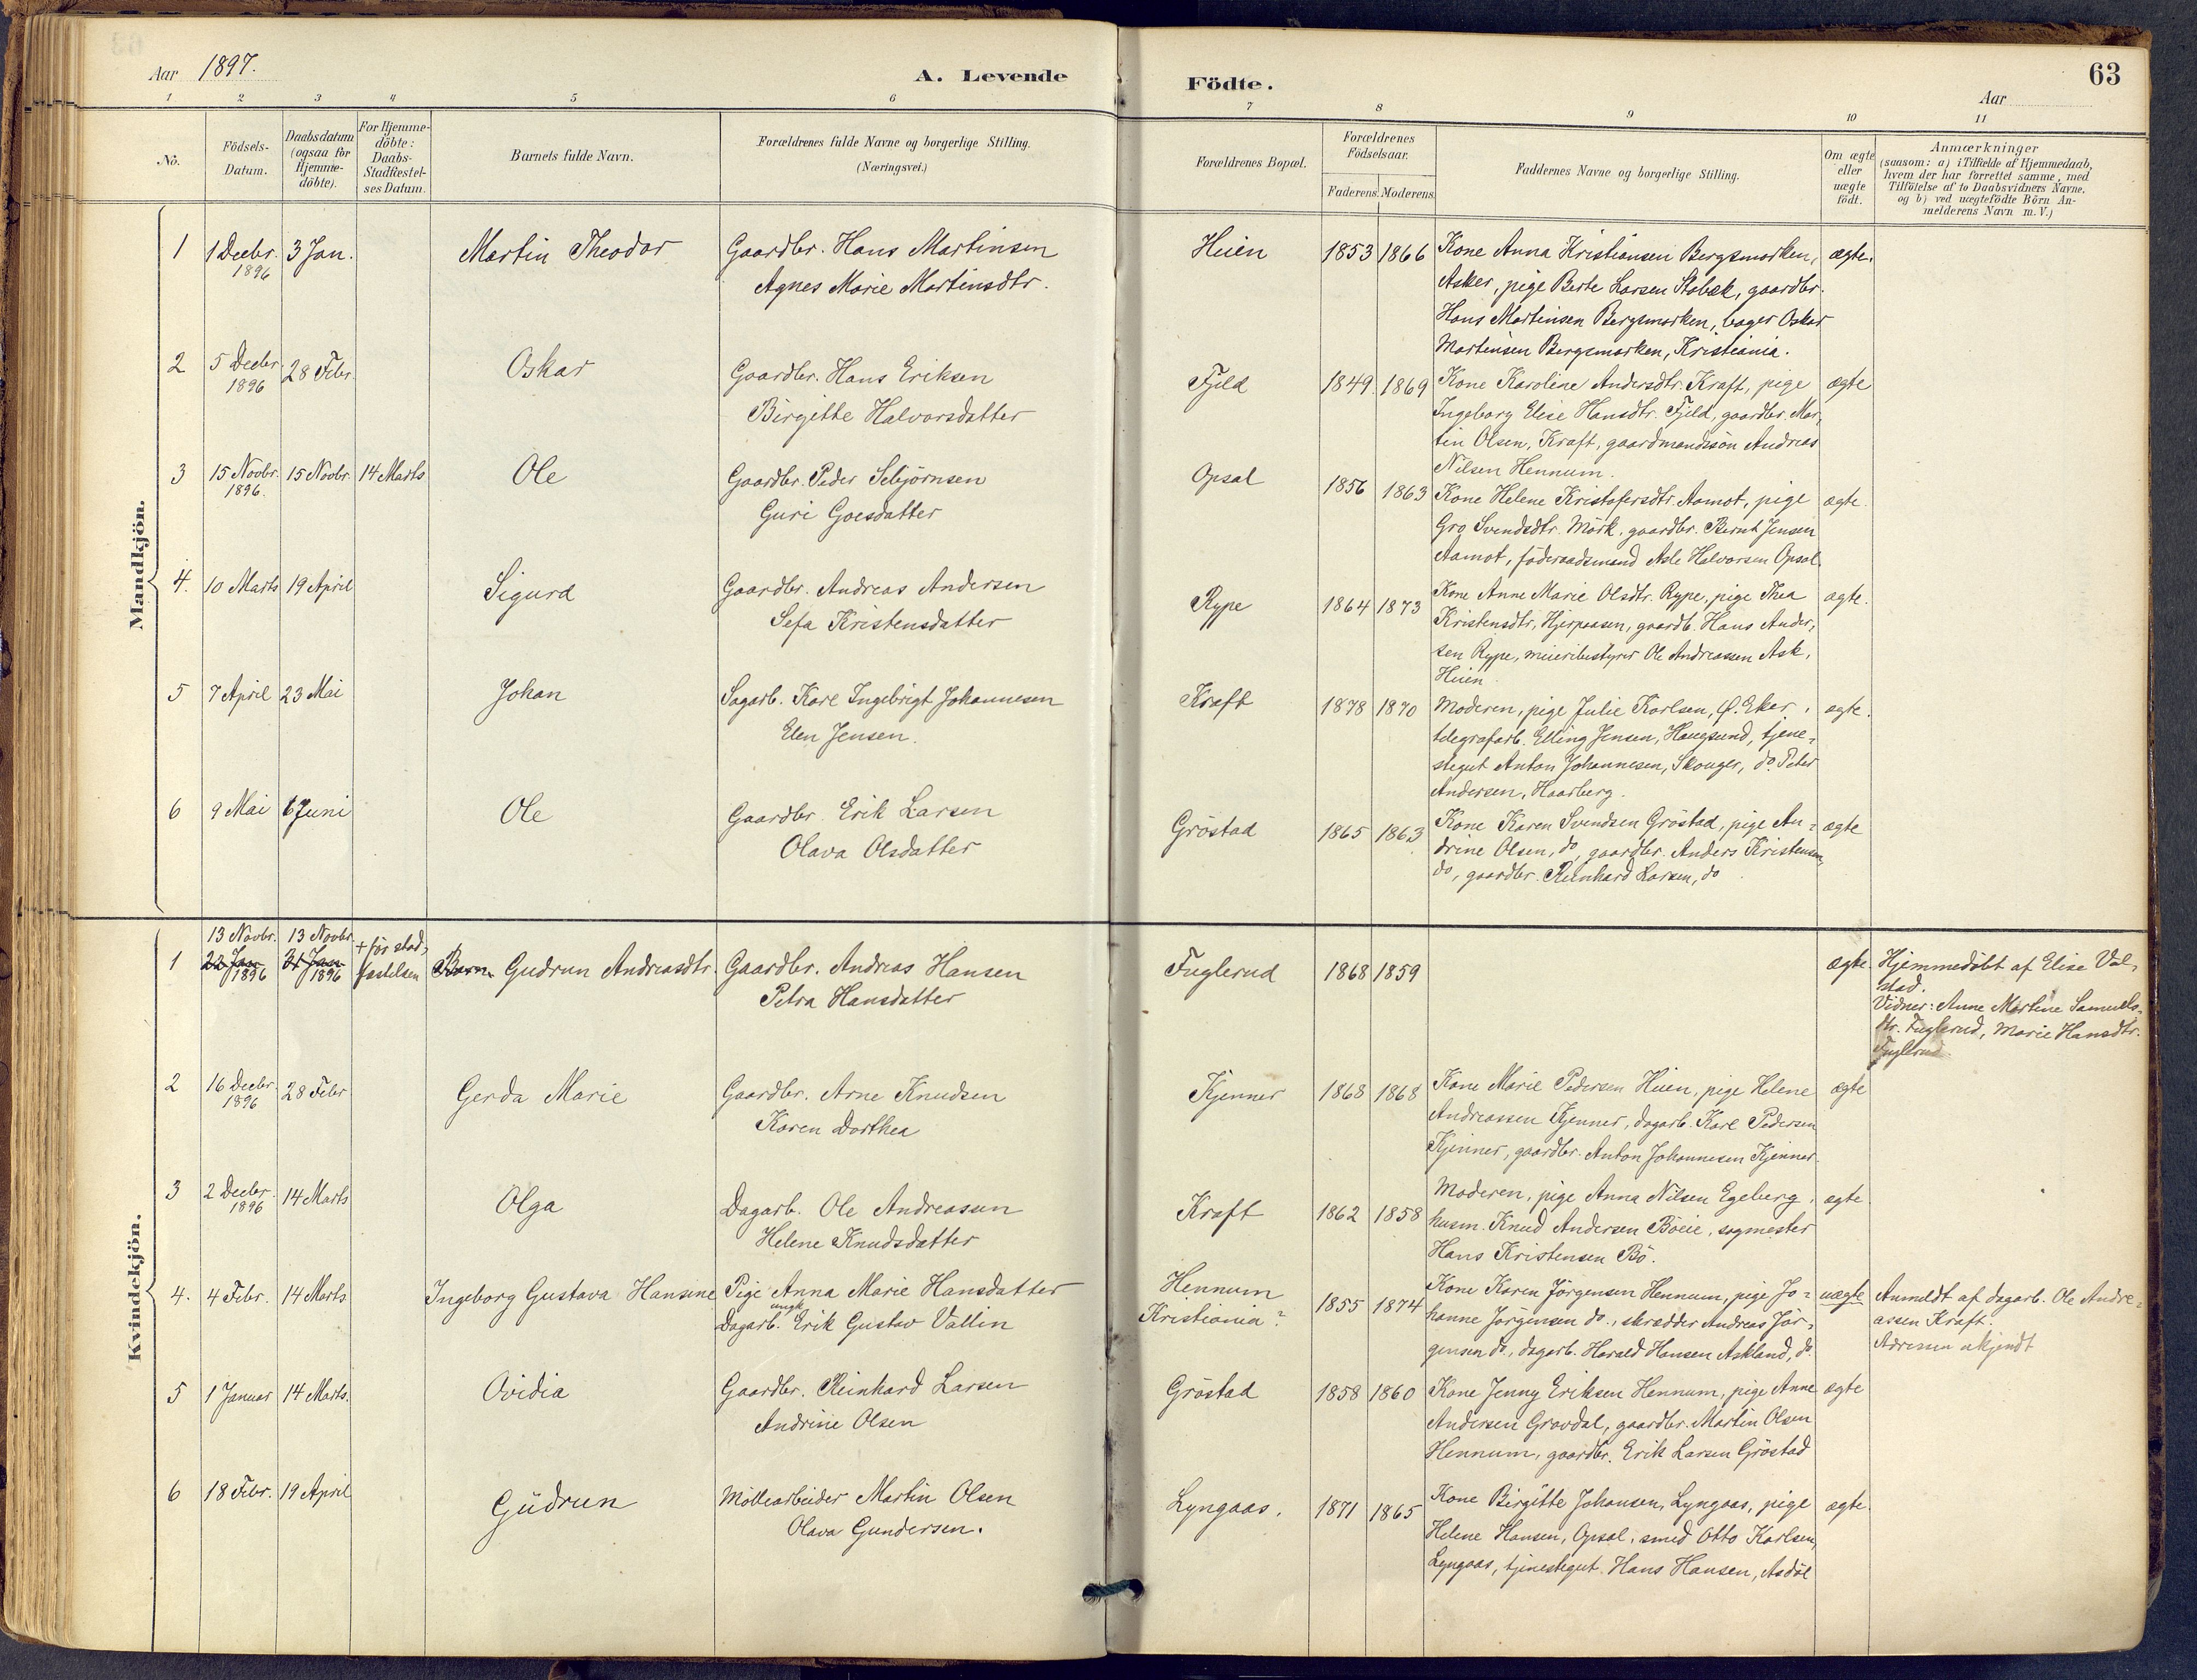 Aar 1897.
A. Levende Födte.
63
Aar
1 2 3 4 5 6 7 8 9 10 11
No.
Födsels-Datum.
Daabsdatum (ogsaa for Hjemme-döbte).
For Hjemme-döbte: Daabs-Stadfæstel-ses Datum.
Barnets fulde Navn.
Forældrenes fulde Navne og borgerlige Stilling. (Næringsvei.)
Forældrenes Bopæl.
Forældrenes Födselsaar.
Faderens. Moderens.
Faddernes Navne og borgerlige Stilling.
Om ægte eller uægte födt.
Anmærkninger (saasom: a) i Tilfælde af Hjemmedaab, hvem der har forrettet samme, med Tilföielse af to Daabsvidners Navne, og b) ved uægtefödte Börn An-melderens Navn m. V.)
Mandkjön.
1 1 Decbr. 1896 3 Jan. Martin Theodor
Gaardbr. Hans Martinsen
Agnes Marie Martinsdtr.
Huien 1853 1866
Kone Anna Kristiansen Bergsmarken, ægte.
Asker, pige Berte Larsen Stabæk, gaardbr.
Hans Martinsen Bergsmarken, bager Oskar
Martinsen Bergsmarken, Kristiania.
2 5 Decbr. 1896 28 Febr. Oskar
Gaardbr. Hans Eriksen
Birgitte Halvorsdatter
Fjeld 1849 1869
Kone Karoline Andersdtr. Kraft, pige ægte
Ingeborg Elise Hansdtr. Fjeld, gaardbr. Mar-
tin Olsen, Kraft, gaardmandssön Andreas
Nilsen Hennum.
3 15 Novbr. 1896. 15 Novbr. 14 Marts Ole
Gaardbr. Peder Sebjörnsen
Guri Goesdatter
Opsal 1856 1863
Kone Helene Kristofersdtr. Aamot, pige ægte.
Gro Svendsdtr. Mörk, gaardbr. Bernt Jensen
Aamot, föderaadsmand Asle Halvorsen Opsal.
4. 10 Marts 19 April Sigurd
Gaardbr. Andreas Andersen
Sefa Kristensdatter
Rype 1864 1873
Kone Anne Marie Olsdtr. Rype, pige Thea ægte.
Kristensdtr, Hjerpaasen, gaardb. Hans Ander-
sen Rype, meieribestyrer Ole Andreassen Ask,
Huien
5 7 April 23 Mai Johan
Sagarb. Karl Ingebrigt Johannesen
Elen Jensen.
Kraft 1878 1870
Moderen, pige Julie Karlsen, Ø. Eker, ægte.
telegrafarb. Elling Jensen, Haugsund, tjene-
stegut Anton Johannesen, Skouger, do. Peter
Andersen, Haarberg.
6 9 Mai 6 Juni Ole
Gaardbr. Erik Larsen
Olava Olsdatter
Gröstad 1865 1863
Kone Karen Svendsen Gröstad, pige An- ægte
drine Olsen, do, gaardbr. Anders Kristensen,
do, gaardbr. Reinhard Larsen, do
Kvindekjön.
1 13 Novbr. 22 Jan 1896 13 Novbr. 31 Jan 1896 + för stad-
fæstelsen
Barn Gudrun Andreasdtr.
Gaardbr. Andreas Hansen
Petra Hansdatter
Fuglerud 1868 1859 ægte.
Hjemmedöbt af Elise Val-
stad.
Vidner: Anne Martine Samuels-
dtr. Fuglerud, Marie Hansdtr.
Fuglerud
2 16 Decbr. 1896 28 Febr Gerda Marie
Gaardbr. Arne Knudsen
Karen Dorthea
Kjenner 1868 1868
Kone Marie Pedersen Huien, pige Helene ægte
Andreassen Kjenner, dagarb. Karl Pedersen
Kjenner, gaardbr. Anton Johannesen Kjenner.
3 2 Decbr. 1896 14 Marts Olga
Dagarb. Ole Andreassen
Helene Knudsdatter
Kraft 1862 1858
Moderen, pige Anna Nilsen Egeberg, ægte
husm. Knud Andersen Böeie, sagmester
Hans Kristensen Bö.
4. 4 Febr. 14 Marts Ingeborg Gustava Hansine
Pige Anna Marie Hansdatter
ungk.
Dagarb. Erik Gustav Vallin
Hennum
Kristiania? 1855 1874
Kone Karen Jörgensen Hennum, pige Jo- uægte
hanne Jörgensen do., skrædder Andreas Jör-
gensen do., dagarb. Harald Hansen Askland, do.
Anmeldt af dagarb. Ole Andre-
assen Kraft.
Adressen ukjendt
5 1 Januar 14 Marts. Ovidia
Gaardbr. Reinhard Larsen
Andrine Olsen
Gröstad 1858 1860
Kone Jenny Eriksen Hennum, pige Anne ægte
Andersen Gravdal, gaardbr. Martin Olsen
Hennum, gaardbr. Erik Larsen Gröstad
6 18 Febr. 19 April Gudrun
Möllearbeider Martin Olsen
Olava Gundersen.
Lyngaas. 1871 1865
Kone Birgitte Johansen, Lyngaas, pige ægte.
Helene Hansen, Opsal, smed Otto Karlsen,
Lyngaas, tjenestegut Hans Hansen, Asdöl